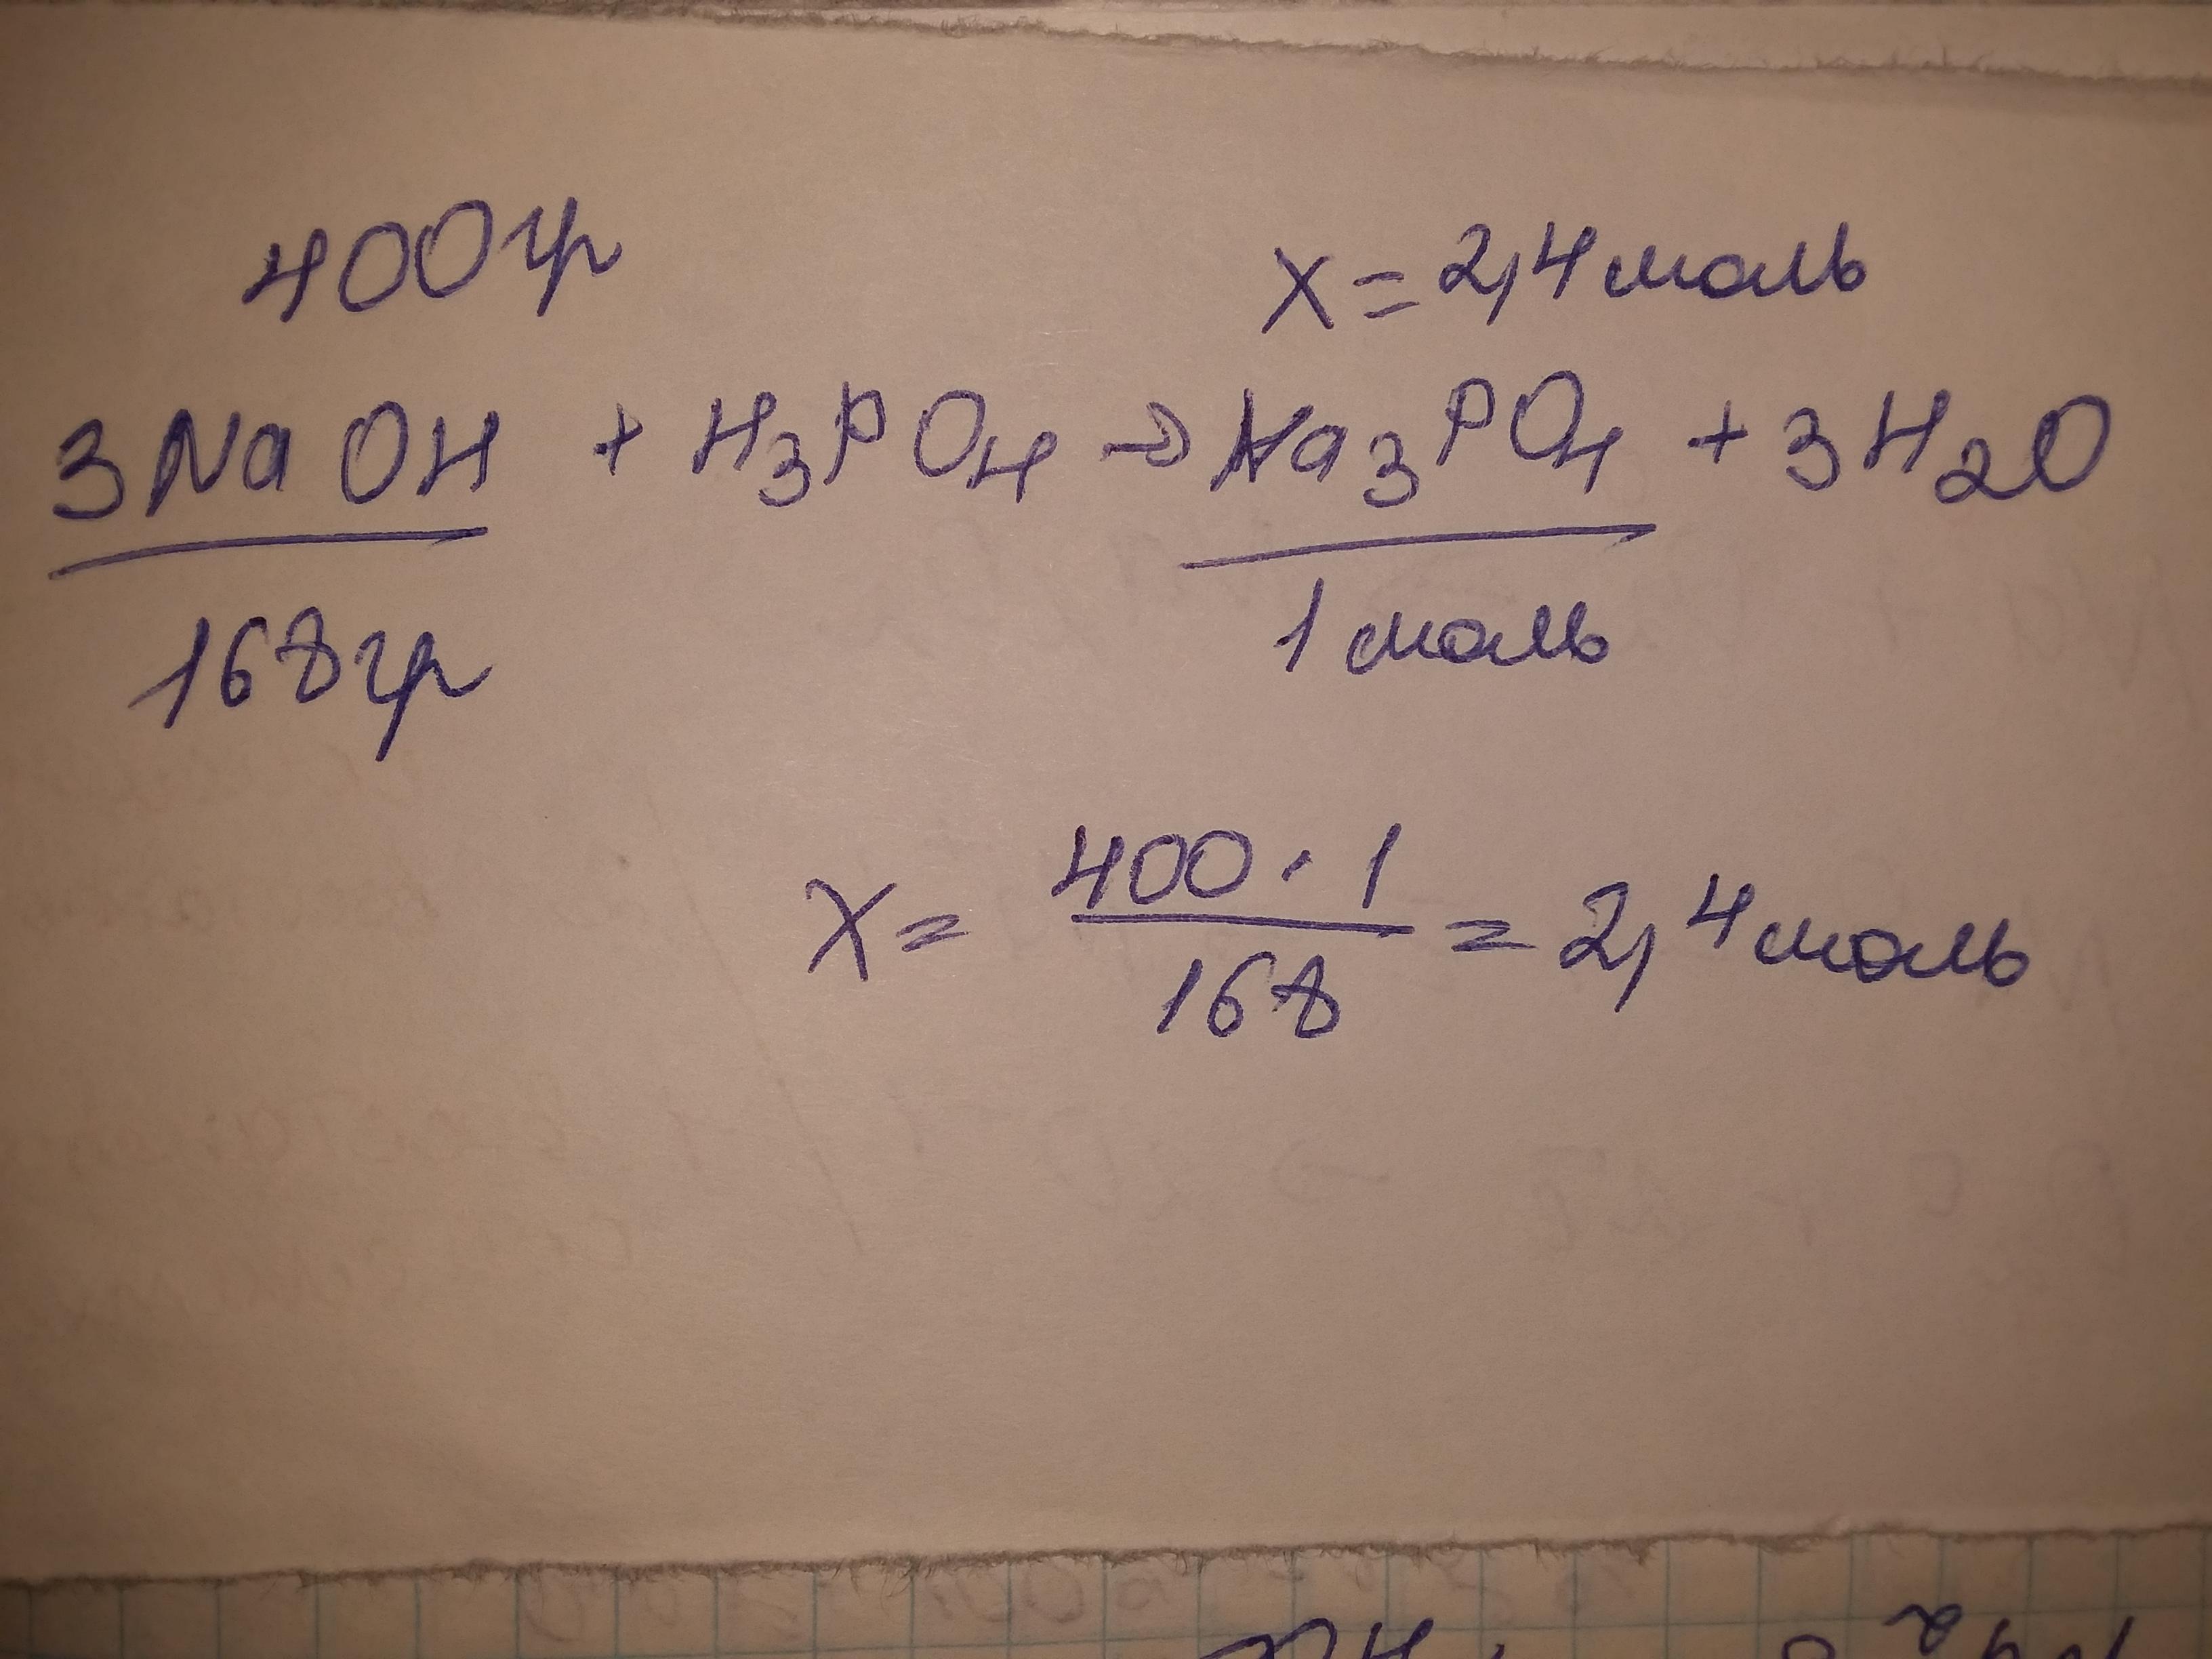 400гр
x = 2,4 моль
3NaOH + H3PO4 → Na3PO4 + 3H2O
168гр
1 моль
X = 400 · 1 / 168 = 2,4 моль